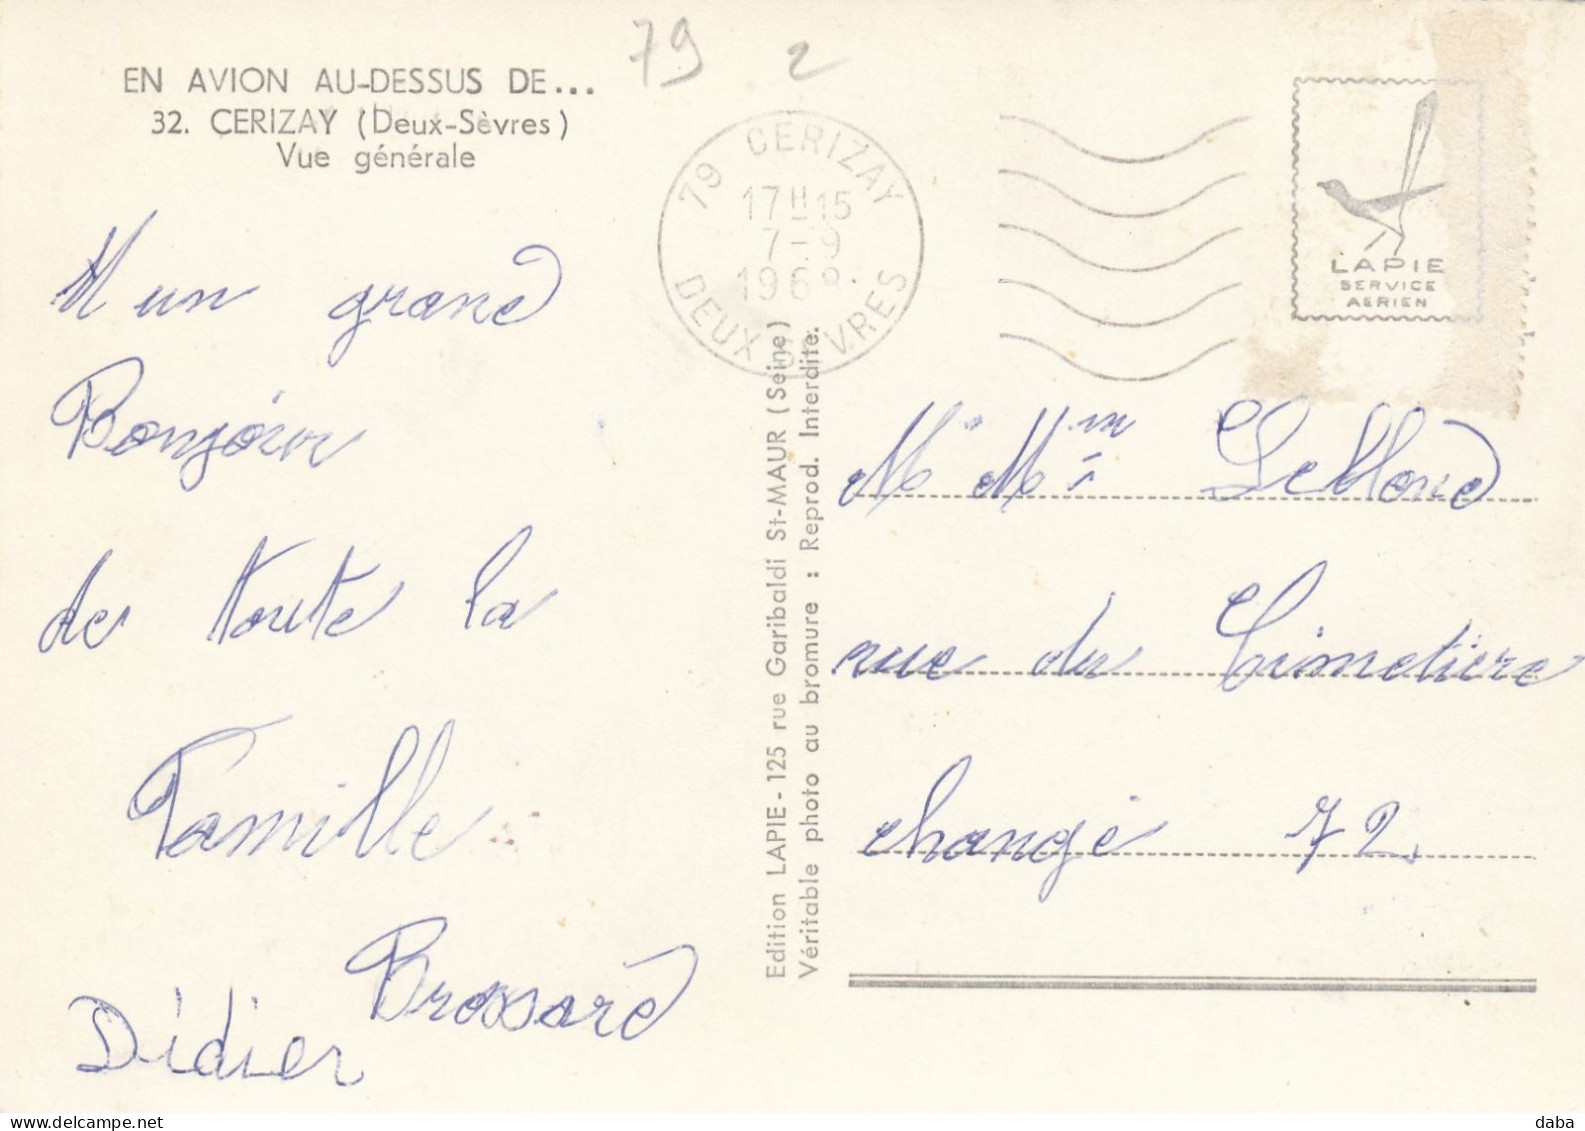 79 2
EN AVION AU-DESSUS DE...
32. CERIZAY (Deux-Sèvres)
Vue générale
79 CERIZAY
17H15
7-9
1968
DEUX SÈVRES
LAPIE
SERVICE
AERIEN
un grand
Bonjour
de toute la
Famille
Brossard
Didier
Edition LAPIE - 125 rue Garibaldi St-MAUR (Seine)
Véritable photo au bromure : Reprod. Interdite.
Mr Mme Leblond
rue du Cimetiere
changé 72.
daba